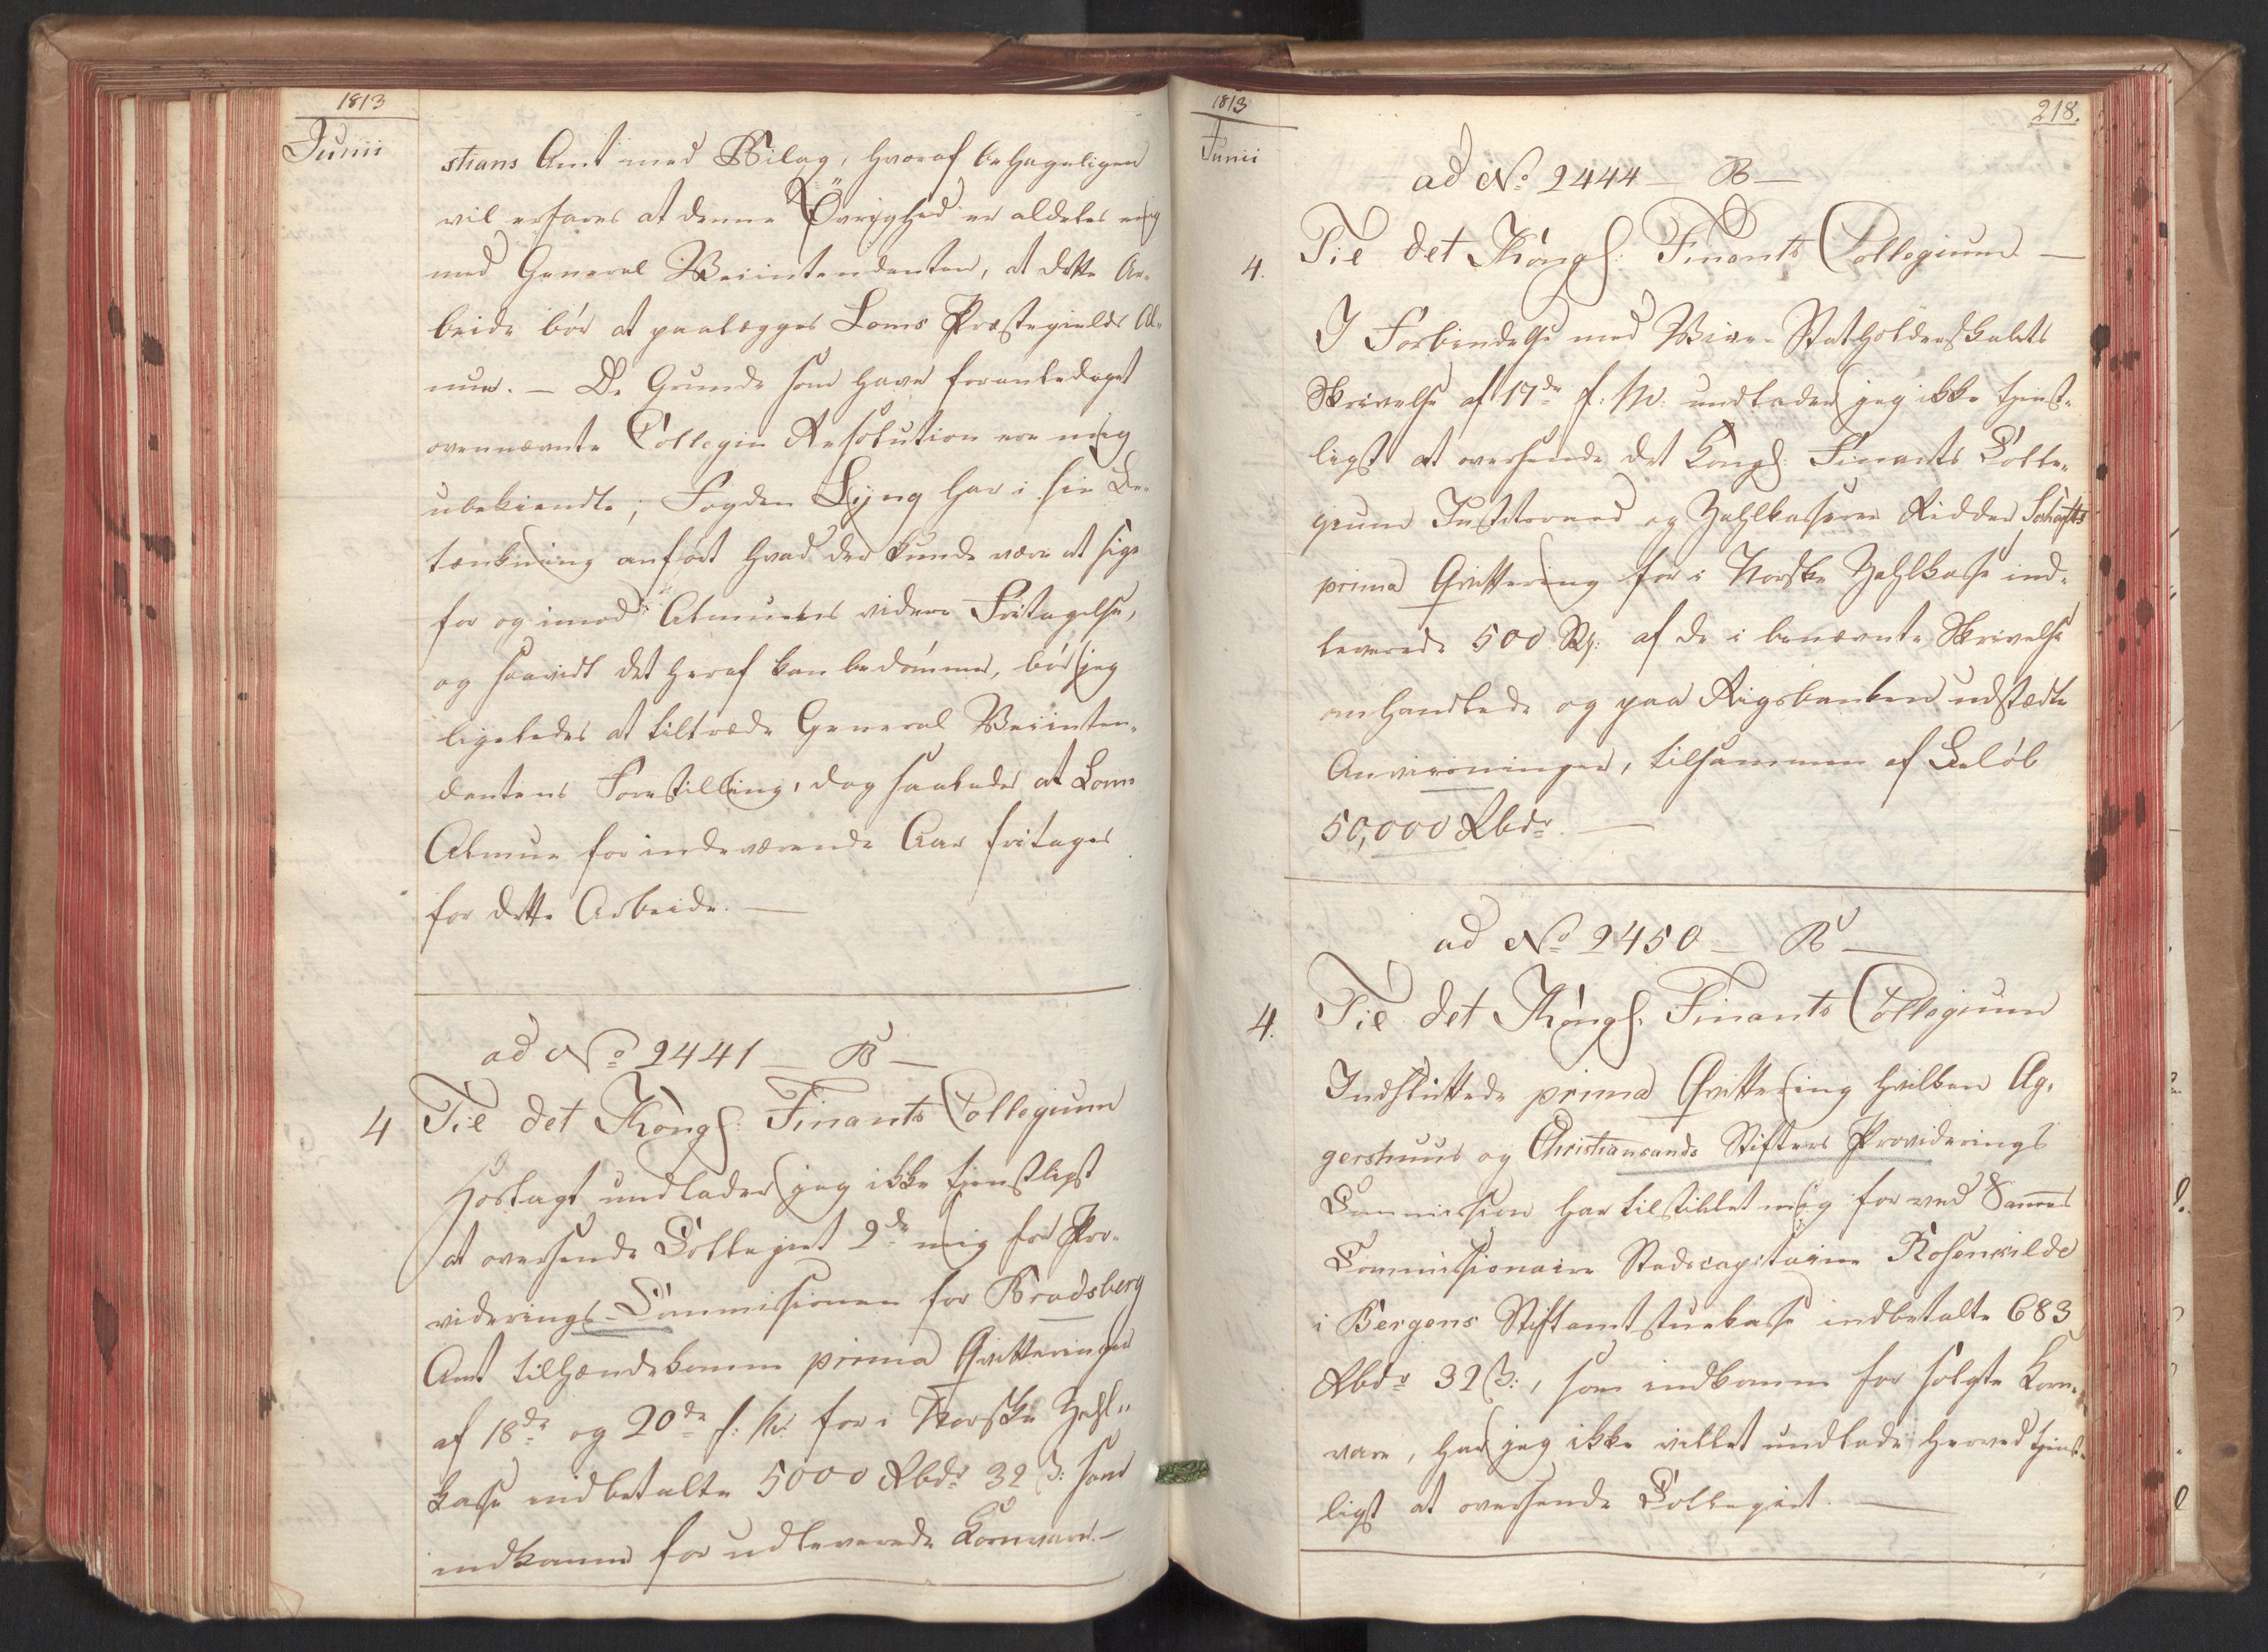 1813
Junii
stians Amt med Bilag, hvoraf behageligen
vil erfares at denne Øvrighed er aldeles enig
med General Veiintendanten, at dette Ar-
beide bør at paalægges Loms Præstegields Al-
mue. — De Grunde som have foranlediget
ovennævnte Collegie Resolution ere mig
ubekiendte; Fogden Lyng har i sin Be-
tænkning anført hvad der kunde være at sige
for og imod Almuens videre Fritagelse,
og saavidt det heraf kan bedømmes, bør jeg
ligeledes at tiltræde General Veiinten-
dantens Forestilling, dog saaledes at Loms
Almue for indeværende Aar fritages
for dette Arbeide. —
ad No 2441 — B —
4 Til det Kongl: Finants Collegium
Hoslagt undlader jeg ikke tjenstligst
at oversende Collegiet 2de mig fra Pro-
viderings-Commissionen for Bradsberg
Amt tilhændekomne prima Qvitteringer
af 18de og 20de f: M: for i Norske Zahl-
kasse indbetalte 5000 Rbdr 32 ß: som
indkomne for udleverede Kornvare. —
1813
Junii
218.
ad No 2444 — B —
4. Til det Kongl: Finants Collegium —
I Forbindelse med Vice-Statholderskabets
Skrivelse af 17de f: M: undlader jeg ikke tjenst-
ligst at oversende det Kongl: Finants Colle-
gium Justitsraad og Zahlkasserer Ridder
prima Qvittering for i Norske Zahlkasse ind-
leverede 500 af de i benævnte Skrivelse
omhandlede og paa Rigsbanken udstædte
Anviisninger, tilsammen af Beløb
50,000 Rbdr. —
ad No 2450 — B —
4. Til det Kongl: Finants Collegium
Indsluttede prima Qvittering hvilken Ag-
gershuus og Christiansands Stifters Providerings
Commission har tilstillet mig for ved Sammes
Commissionaire Stadscapitaine Rosenkilde
i Bergens Stiftamtstuekasse indbetalte 683
Rbdr 32 ß:, som indkomne for solgte Korn-
vare, har jeg ikke villet undlade herved tjenst-
ligst at oversende Collegiet. —